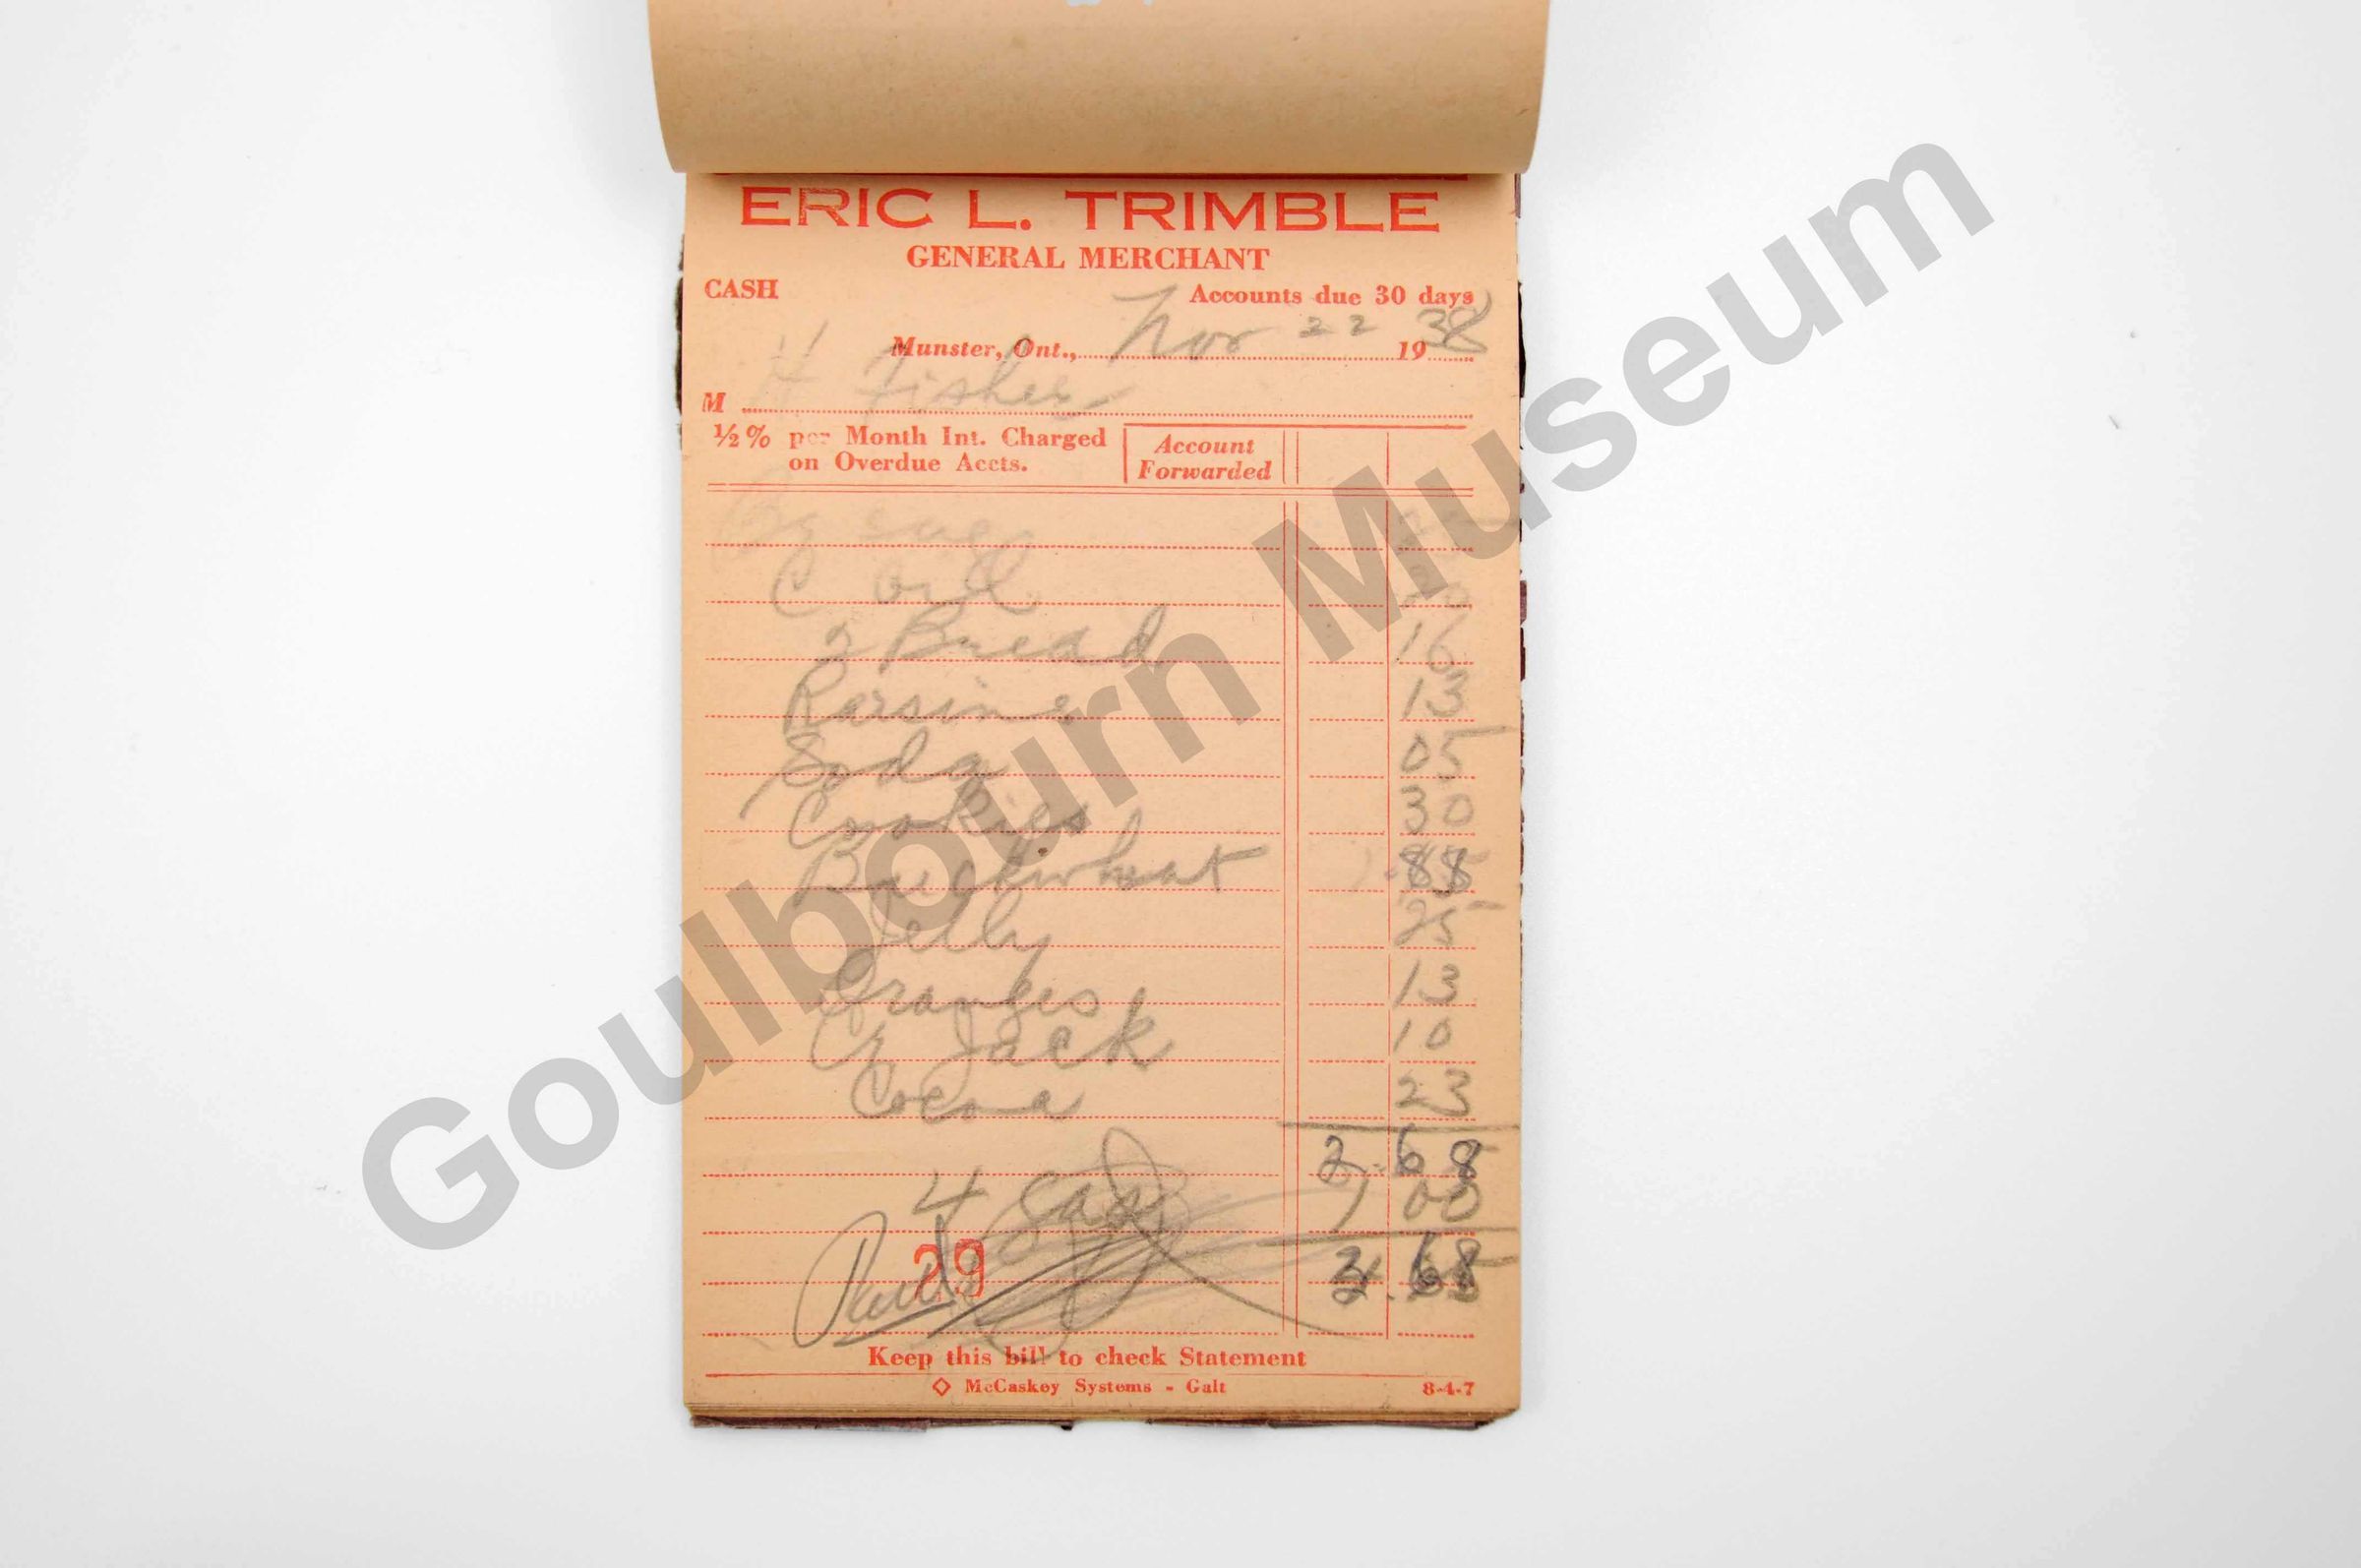 ERIC L. TRIMBLE
GENERAL MERCHANT
CASH Accounts due 30 days
Munster, Ont., Nov 22 1938
M H Fisher
½% per Month Int. Charged on Overdue Accts. Account Forwarded
C Oil
2 Bread 16
Raisins 13
Soda 05
Cookies 30
Buckwheat .88
Jelly 25
Oranges 13
Cr Jack 10
Cocoa 23
2.68
4 gas 1 00
3.68
Paid
29
Keep this bill to check Statement
McCaskey Systems - Galt 8-4-7
Goulbourn Museum